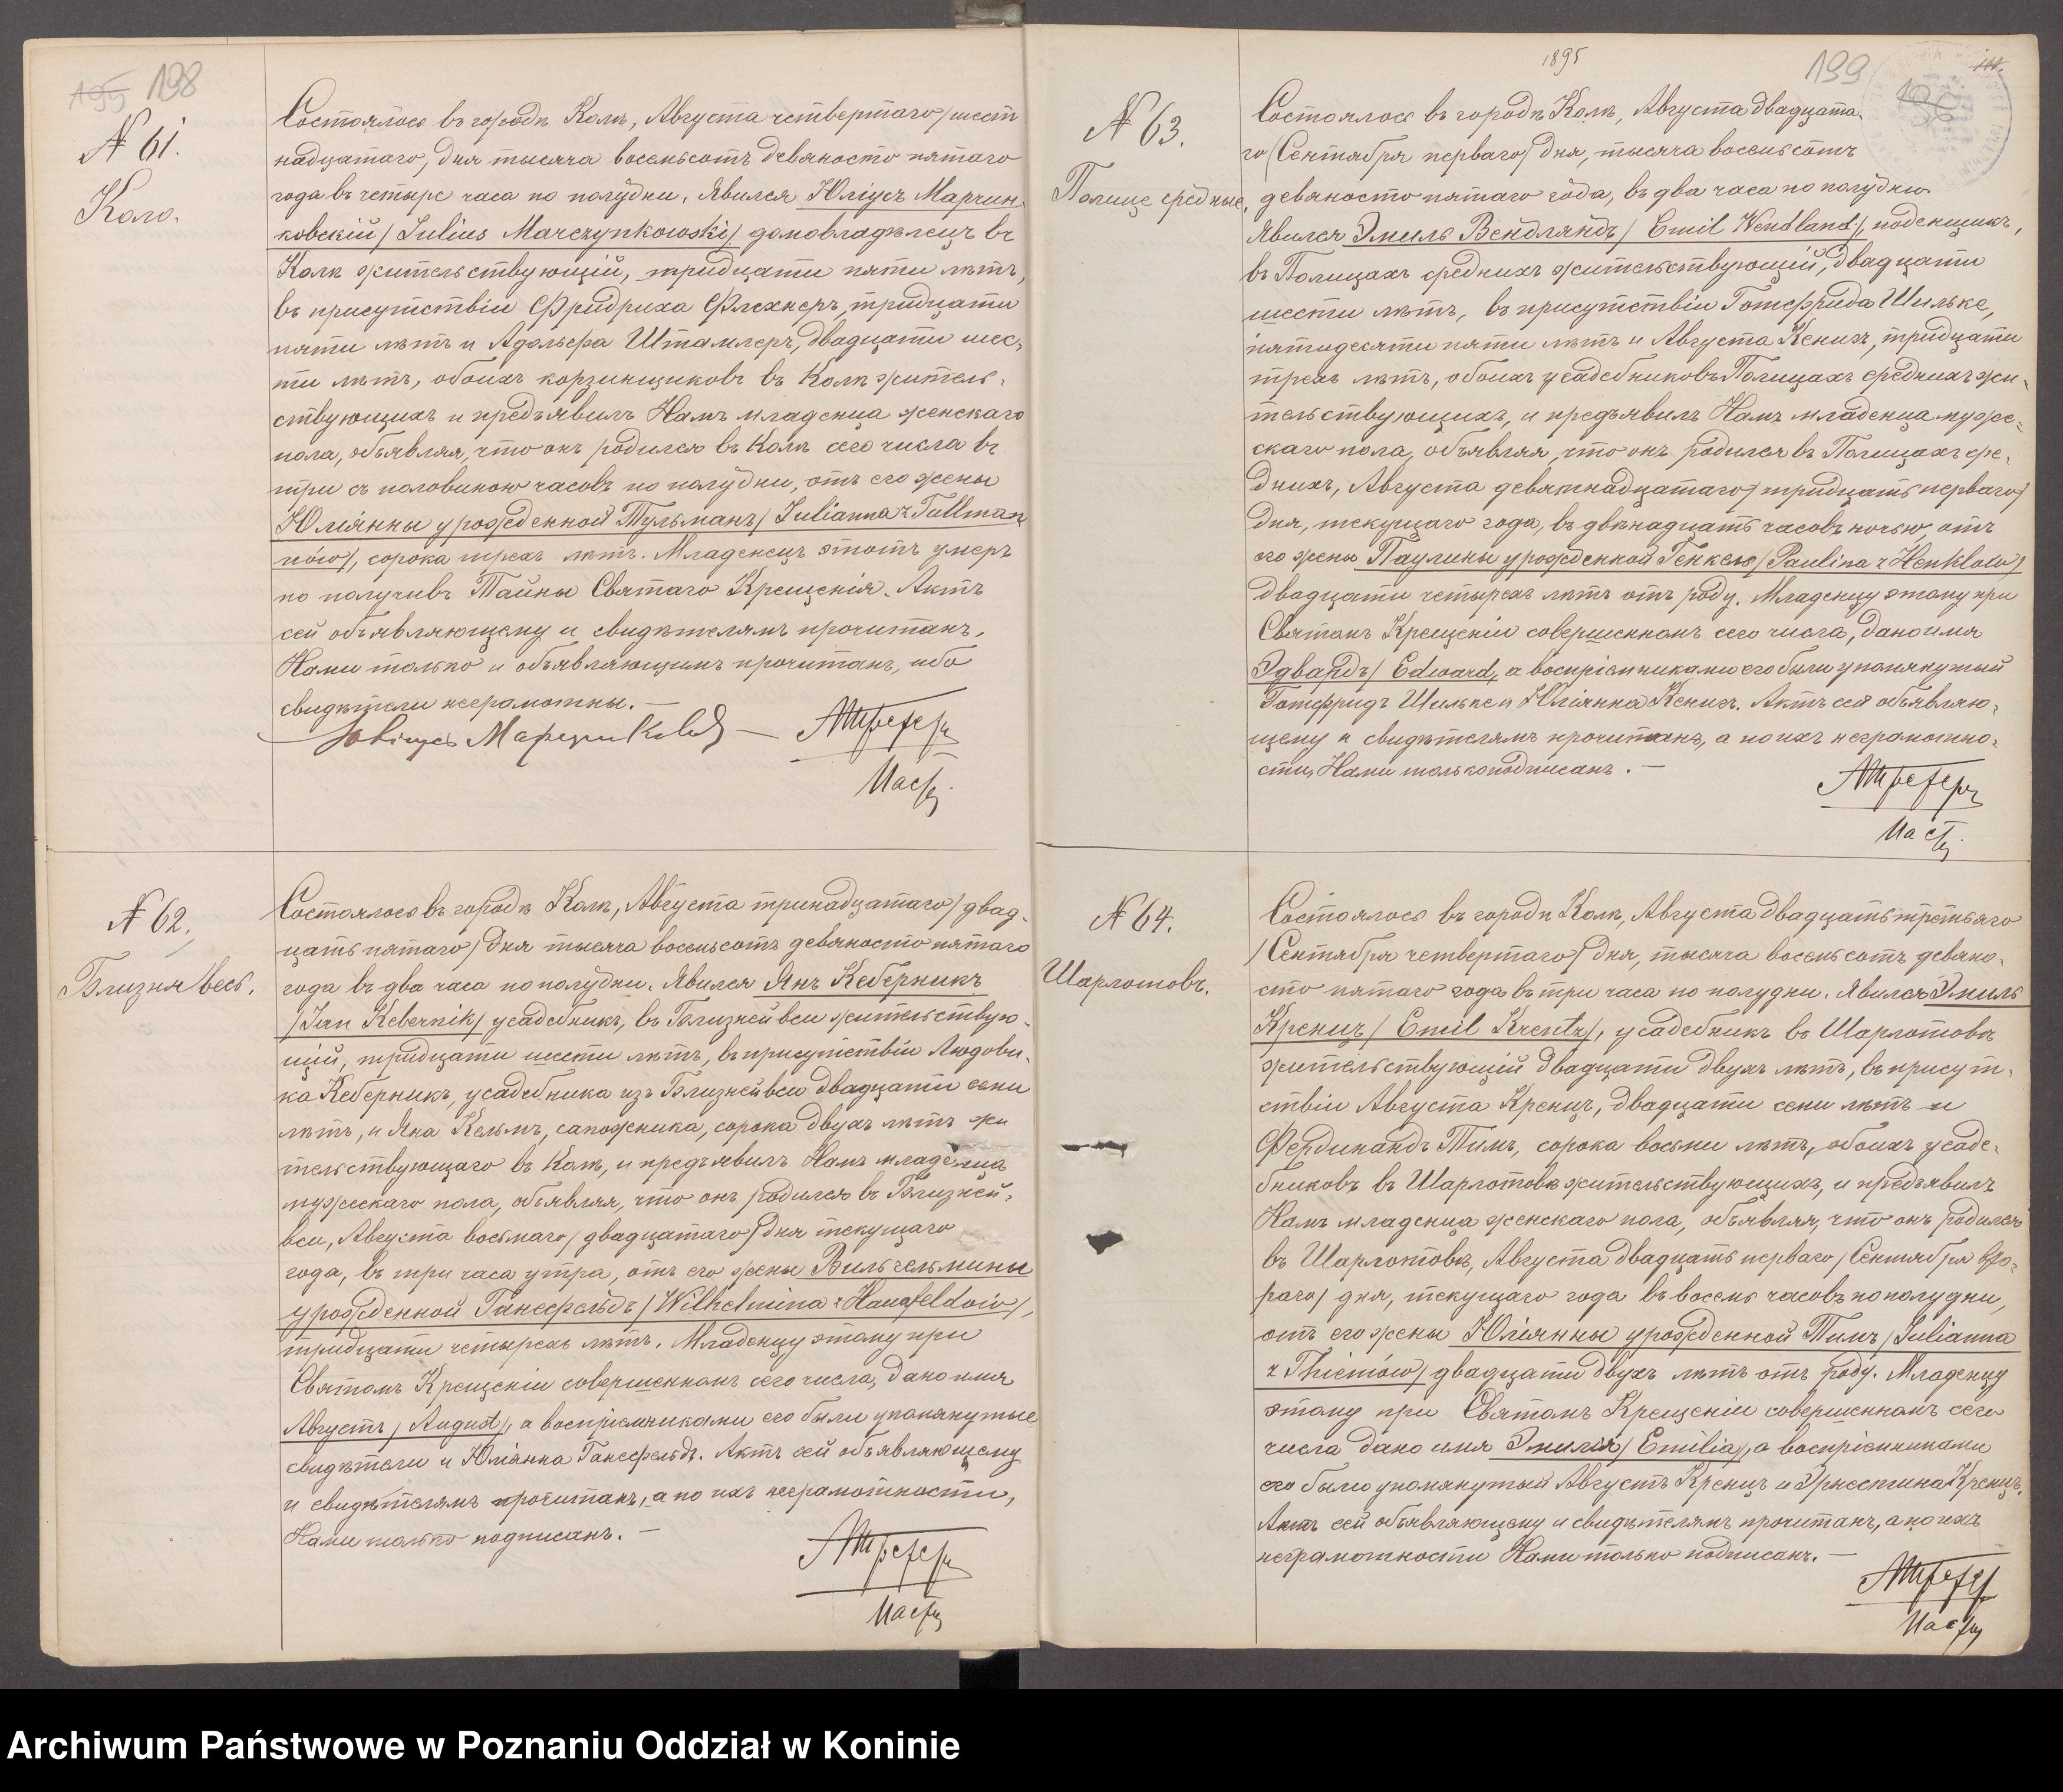 198
N 61.
Коло.
Состоялось въ городѣ Колѣ, Августа четвертаго / шест
надцатаго, дня тысяча восемьсотъ девяносто пятаго
года въ четыре часа по полудни. Явился Юліусъ Марчин-
ковскій / Julius Marczynkowski / домовладѣлецъ въ
Колѣ жительствующій, тридцати пяти лѣтъ,
въ присутствіи Фридриха Флехнеръ, тридцати
пяти лѣтъ и Адольфа Штамлеръ, двадцати шес-
ти лѣтъ, обоихъ корзинщиковъ въ Колѣ житель-
ствующихъ и предъявилъ Намъ младенца женскаго
пола, объявляя, что онъ родился въ Колѣ сего числа въ
три съ половиною часовъ по полудни, отъ его жены
Юліянны урожденной Тульманъ / Julianna z Tullman
nów /, сорока трехъ лѣтъ. Младенецъ этотъ умеръ
не получивъ Тайны Святаго Крещенія. Актъ
сей объявляющему и свидѣтелямъ прочитанъ,
Нами только и объявляющимъ прочитанъ, ибо
свидѣтели неграмотны. —
N 62.
Близня весь.
Состоялось въ городѣ Колѣ, Августа тринадцатаго / двад-
цать пятаго / дня тысяча восемьсотъ девяносто пятаго
года въ два часа по полудни. Явился Янъ Кеберникъ
/ Jan Kebernik / усадебникъ, въ Близнейвси жительствую-
щій, тридцати шести лѣтъ, въ присутствіи Людови-
ка Кеберникъ, усадебника изъ Близнейвси двадцати семи
лѣтъ, и Яна Кельмъ, сапожника, сорока двухъ лѣтъ жи
тельствующаго въ Колѣ, и предъявилъ Намъ младенца
мужескаго пола, объявляя, что онъ родился въ Близней-
вси, Августа восьмаго / двадцатаго / дня текущаго
года, въ три часа утра, отъ его жены Вильгельмины
урожденной Гансфельдъ / Wilhelmina z Hansfeldów /,
тридцати четырехъ лѣтъ. Младенцу этому при
Святомъ Крещеніи совершенномъ сего числа, дано имя
Августъ / August /, а воспріемниками его были упомянутые
свидѣтели и Юліянна Гансфельдъ. Актъ сей объявляющему
и свидѣтелямъ прочитанъ, а по ихъ неграмотности,
Нами только подписанъ. —
1895
199
N 63.
Полице средные.
Состоялось въ городѣ Колѣ, Августа двадцата-
го / Сентября перваго / дня, тысяча восемьсотъ
девяносто пятаго года, въ два часа по полудни.
Явился Эмиль Вендляндъ / Emil Wendland /, поденщикъ,
въ Полицахъ среднихъ жительствующій, двадцати
шести лѣтъ, въ присутствіи Готфрида Шильке,
пятидесяти пяти лѣтъ и Августа Кенигъ, тридцати
трехъ лѣтъ, обоихъ усадебниковъ Полицахъ среднихъ жи-
тельствующихъ, и предъявилъ Намъ младенца муже-
скаго пола, объявляя, что онъ родился въ Полицахъ сре-
днихъ, Августа девятнадцатаго / тридцать перваго /
дня, текущаго года, въ двѣнадцать часовъ ночью, отъ
его жены Паулины урожденной Генкель / Paulina z Henklów /
двадцати четырехъ лѣтъ отъ роду. Младенцу этому при
Святомъ Крещеніи совершенномъ сего числа, дано имя
Эдвардъ / Edward, а воспріемниками его были упомянутый
Готфридъ Шильке и Юліянна Кенигъ. Актъ сей объявляю-
щему и свидѣтелямъ прочитанъ, а по ихъ неграмотно-
сти, Нами только подписанъ. —
N 64.
Шарлотовъ.
Состоялось въ городѣ Колѣ, Августа двадцать третьяго
/ Сентября четвертаго / дня, тысяча восемьсотъ девяно-
сто пятаго года въ три часа по полудни. Явился Эмиль
Кренцъ / Emil Krentz /, усадебникъ въ Шарлотовѣ
жительствующій двадцати двухъ лѣтъ, въ присут-
ствіи Августа Кренцъ, двадцати семи лѣтъ и
Фердинандъ Тимъ, сорока восьми лѣтъ, обоихъ усаде-
бниковъ въ Шарлотовѣ жительствующихъ, и предъявилъ
Намъ младенца женскаго пола, объявляя, что онъ родился
въ Шарлотовѣ, Августа двадцать перваго / Сентября вто-
раго / дня, текущаго года въ восемь часовъ по полудни,
отъ его жены Юліянны урожденной Тимъ / Julianna
z Thiemów / двадцати двухъ лѣтъ отъ роду. Младенцу
этому при Святомъ Крещеніи совершенномъ сего
числа дано имя Эмилія / Emilia /, а воспріемниками
его были упомянутый Августъ Кренцъ и Эрнестина Кренцъ.
Актъ сей объявляющему и свидѣтелямъ прочитанъ, а по ихъ
неграмотности Нами только подписанъ. —
Archiwum Państwowe w Poznaniu Oddział w Koninie